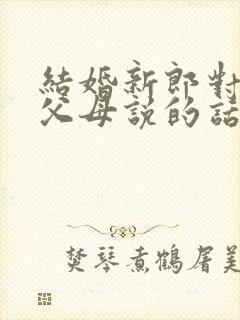 結婚新郎對
父母說的話
焚琴煮鶴屠美